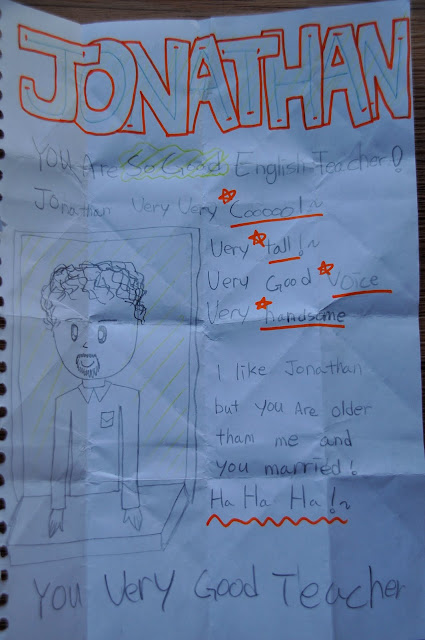 JONATHAN
You Are So Good English Teacher!
Jonathan Very Very Cooooo!~
Very tall!~
Very Good Voice
Very handsome
I like Jonathan
but you Are older
tham me and
you married!
Ha Ha Ha!~
You Very Good Teacher